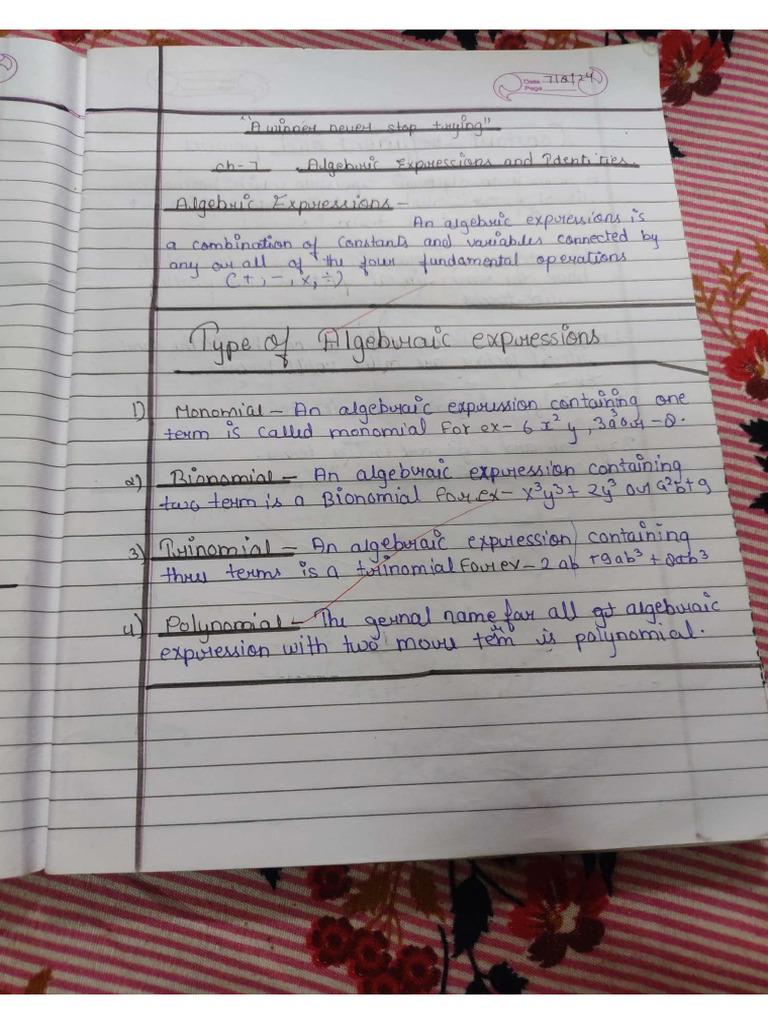 Date 7/8/24
Page
"A winner never stop trying"
ch-7 Algebric Expressions and Identities.
Algebric Expressions -
An algebric expressions is
a combination of constants and variables connected by
any or all of the four fundamental operations
(+, -, x, ÷)
Type of Algebraic expressions
1) Monomial - An algebraic expression containing one
term is called monomial For ex - 6x²y,
2) Bionomial - An algebraic expression containing
two term is a Bionomial for ex - x³y³ + 2y³ or a²b+9
3) Trinomial - An algebraic expression containing
three terms is a trinomial for ex - 2ab +9ab³ +
4) Polynomial - The gernal name for all algebraic
expression with two more term is polynomial.